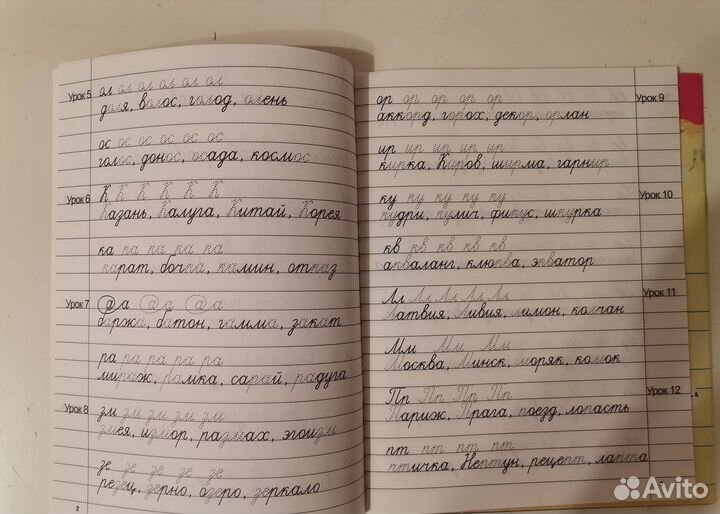 Урок 5
ол ол ол ол ол ол
доля, волос, голод, олень
ос ос ос ос ос ос
голос, донос, осада, космос
Урок 6
К К К К К К
Казань, Калуга, Китай, Корея
ка ка ка ка ка
карат, бочка, камин, отказ
Урок 7
@а @а @а
баржа, батон, гамма, закат
ра ра ра ра ра
мираж, рамка, сарай, радуга
Урок 8
зм зм зм зм зм
змея, измор, размах, эгоизм
зе зе зе зе зе
резец, зерно, озеро, зеркало
2
ор ор ор ор ор
Урок 9
аккорд, горох, декор, орлан
ир ир ир ир ир
кирка, Киров, ширма, гарнир
ку ку ку ку ку
Урок 10
кудри, кулич, фикус, шкурка
кв кв кв кв кв
акваланг, клюква, экватор
Лл Лл Лл Лл Лл
Урок 11
Латвия, Ливия, лимон, колчан
Мм Мм Мм
Москва, Минск, моряк, комок
Пр Пр Пр Пр
Урок 12
Париж, Прага, поезд, лопасть
пт пт пт пт
птичка, Нептун, рецепт, лапта
4
Avito